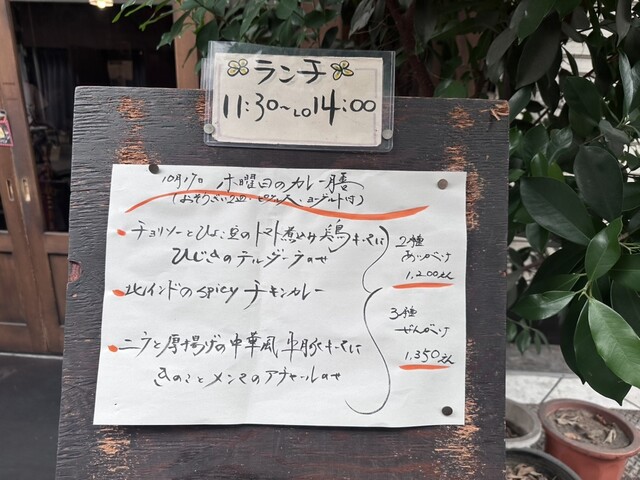 ランチ
11:30~LO14:00
10月17日 木曜日のカレー膳
(おそうざい2辺・ピクルス・ヨーグルト付)
・チョリソーとひよこ豆のトマト煮込み鶏キーマに
ひじきのテルダーラのせ
・北インドのspicyチキンカレー
・ニラと厚揚げの中華風 豚キーマに
きのことメンマのアチャールのせ
2種
あいがけ
1,200えん
3種
ぜんがけ
1,350えん